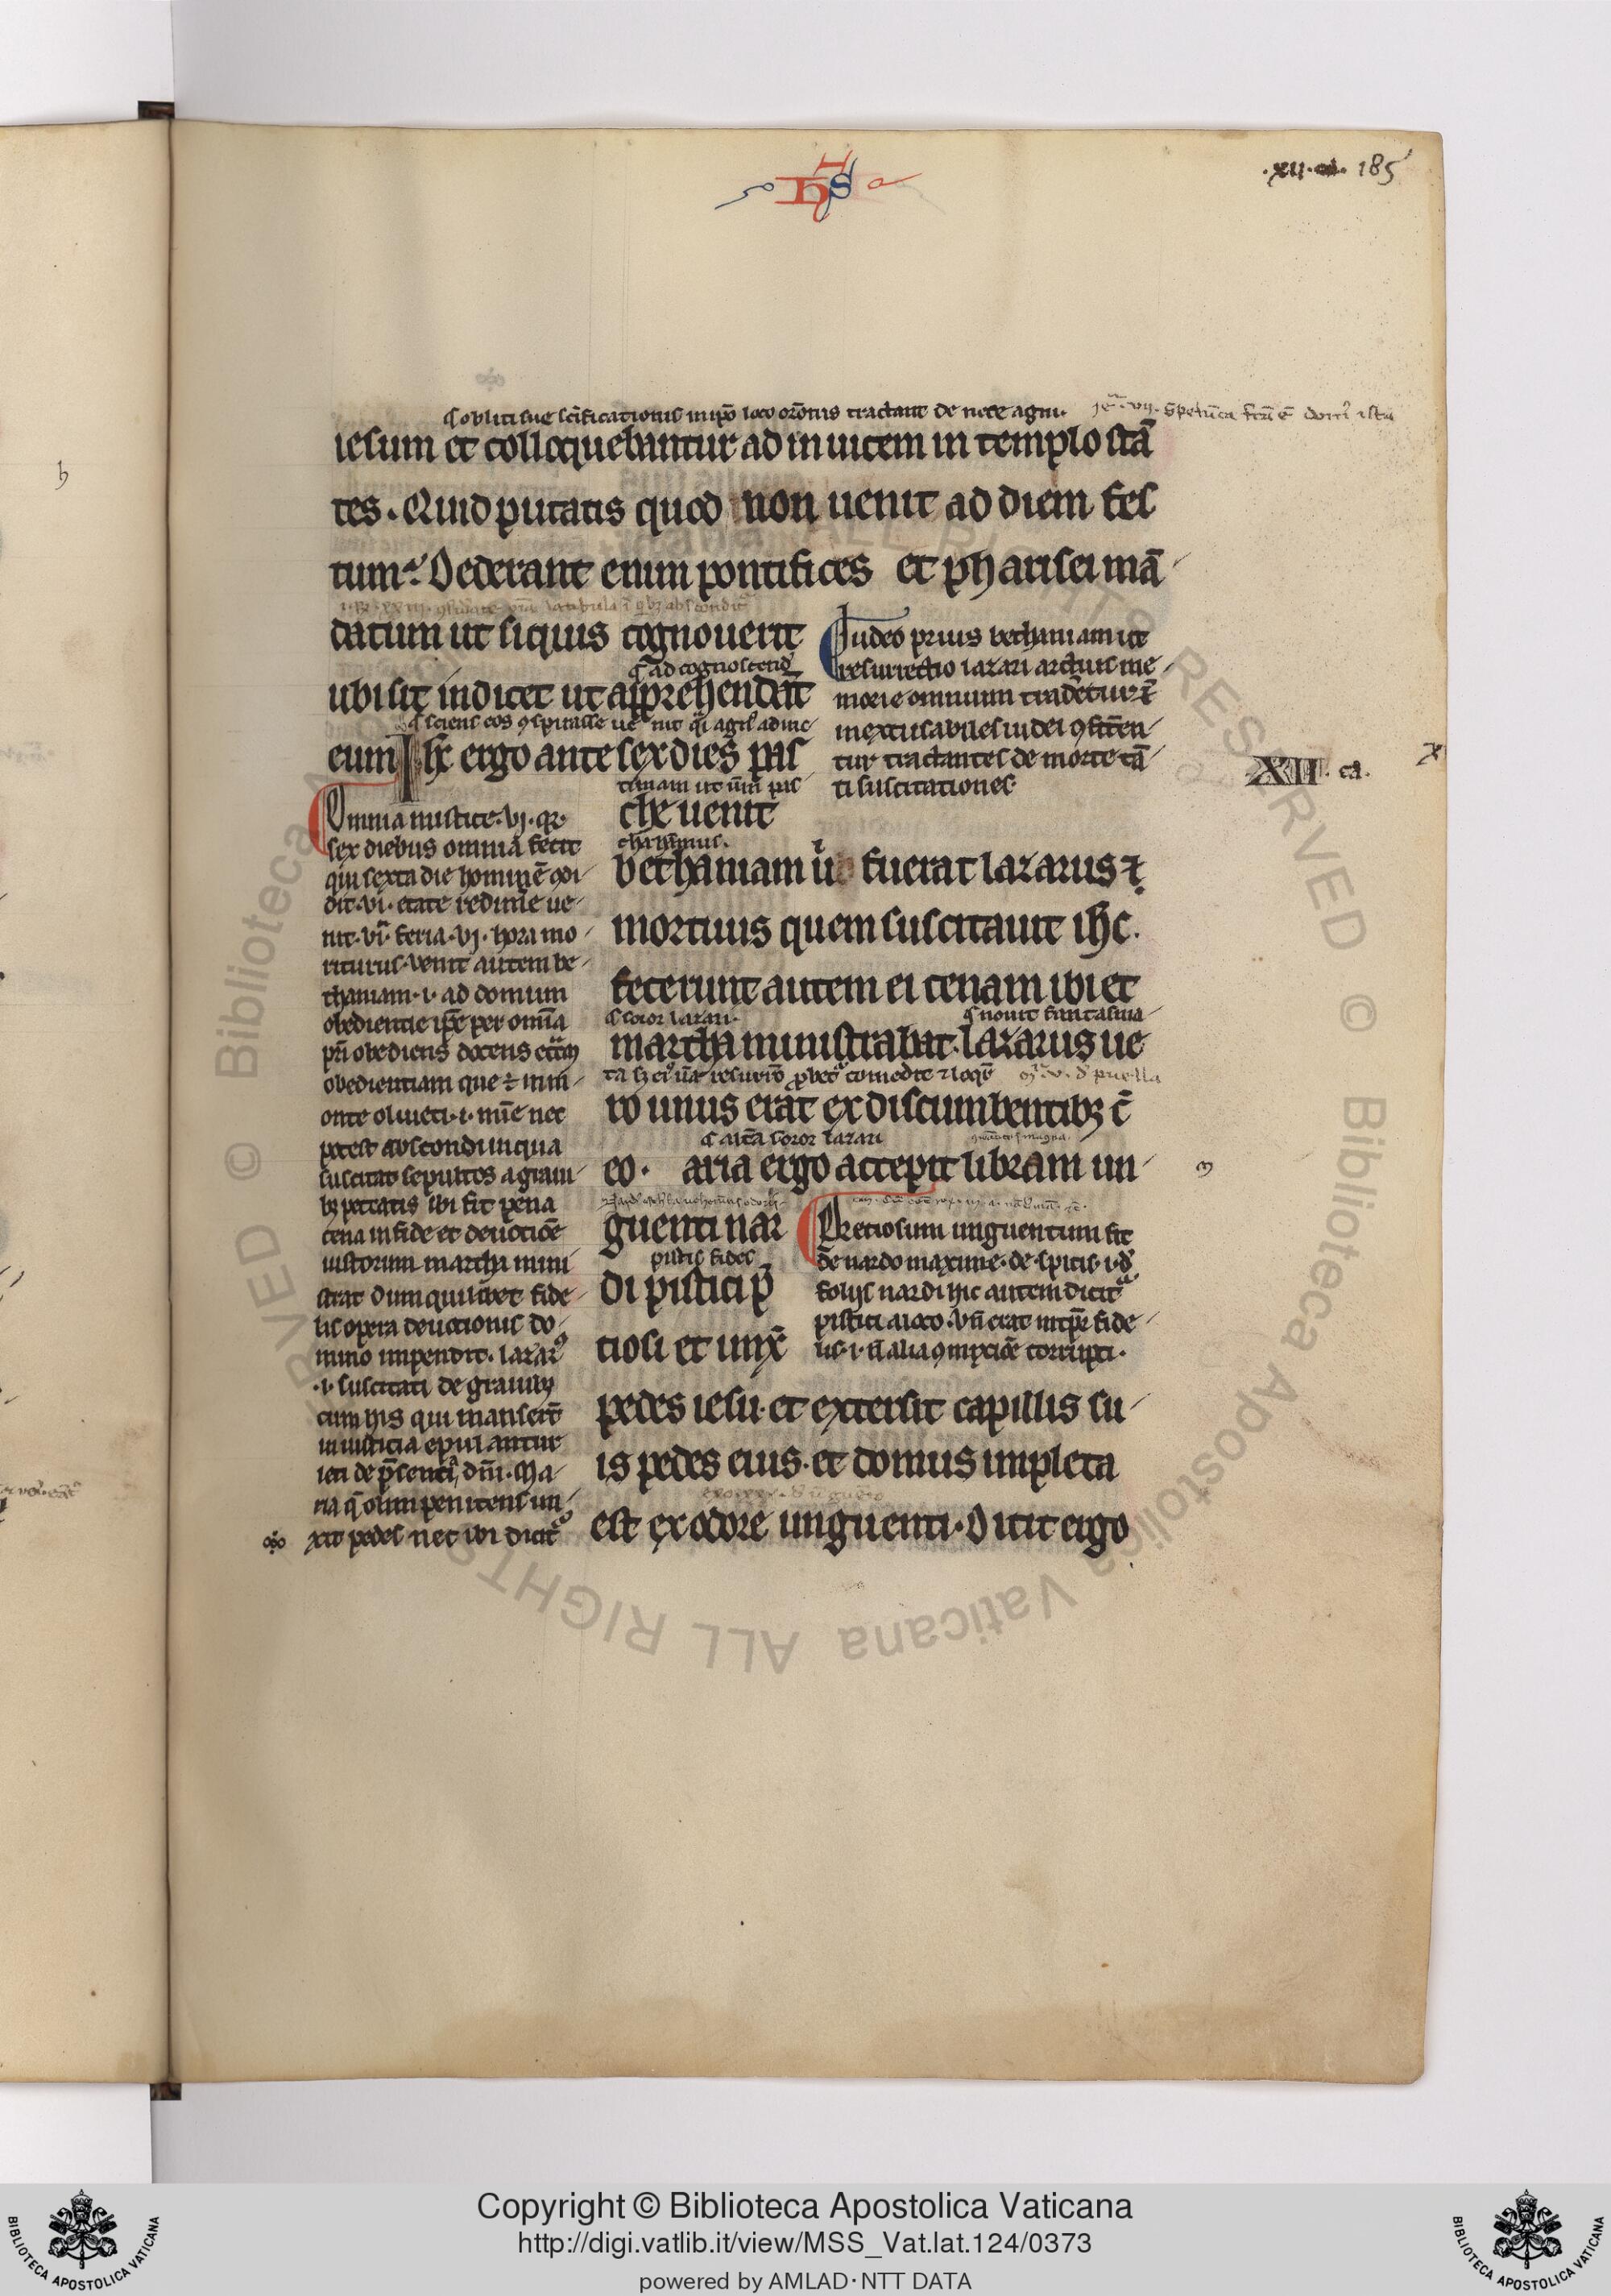 hs
.XII. 185
¶ obliti sue scificationis in ipo loco oronis tractant de nece agni.
iesum et colloquebantur ad inuicem in templo stā
tes. Quid putatis quod non uenit ad diem fes
tum? Dederant enim pontifices et pharisei mā
datum ut siquis cognouerit
¶ ad cognoscend
ubi sit indicet ut apprehendāt
¶ sciens eos ꝯspirasse ue nit
eum Ihc ergo ante sex dies pas
che uenit
bethaniam ubi fuerat lazarus
mortuus quem suscitauit ihc.
fecerunt autem ei cenam ibi et
¶ soror lazari. ¶ nouit fantasma
martha ministrabat. lazarus ue
ro unus erat ex discumbentibꝫ c̄
¶ altā soror lazari
eo. aria ergo accepit libram un
guenti nar
pistis fides
di pistici p̄
tiosi et unx̄
pedes iesu. et extersit capillis su
is pedes eius. et domus impleta
est ex odore unguenti. Dicit ergo
Iudeo prius bethaniam ut
resurrectio lazari artius me
morie omnium
inexcusabiles iudei ꝯfteren
tur tractantes de morte tā
ti suscitationes
XII. ca.
Omnia mistice. vj. qr.
sex diebus omnia fecit
qui sexta die hominē ꝯdi
dit. vi. etate redime ue
nit. vi. feria. vj. hora mo
riturus. venit autem be
thaniam. i. ad domum
obedientie ipe per omia
pri obediens docens
obedientiam que
onte oliueti. i. nec
potest abscondi in qua
suscitat sepultos a graui
bꝫ peccatis ibi fit
cena in fide et deuotiōe
iustorum martha mini
strat dum quilibet fide
lis opera deuotionis do
mino impendit. lazarꝰ
.i. suscitati de grauibꝫ
cum his qui manserūt
in iusticia epulantur
leti de p̄sentia dnī. Ma
ria q̄ olim penitens un
xit pedes nec ibi dicit
Pretiosum unguentum fit
de nardo maxime. de spicis. i. d
foliis nardi hic autem dicit
pistici a loco. un erat nitpe fide
lis. i. n alia ꝯmixtiōe corrupti.
Copyright © Biblioteca Apostolica Vaticana
http://digi.vatlib.it/view/MSS_Vat.lat.124/0373
powered by AMLAD·NTT DATA
BIBLIOTECA APOSTOLICA VATICANA
BIBLIOTECA APOSTOLICA VATICANA
© Biblioteca Apostolica Vaticana ALL RIGHTS RESERVED